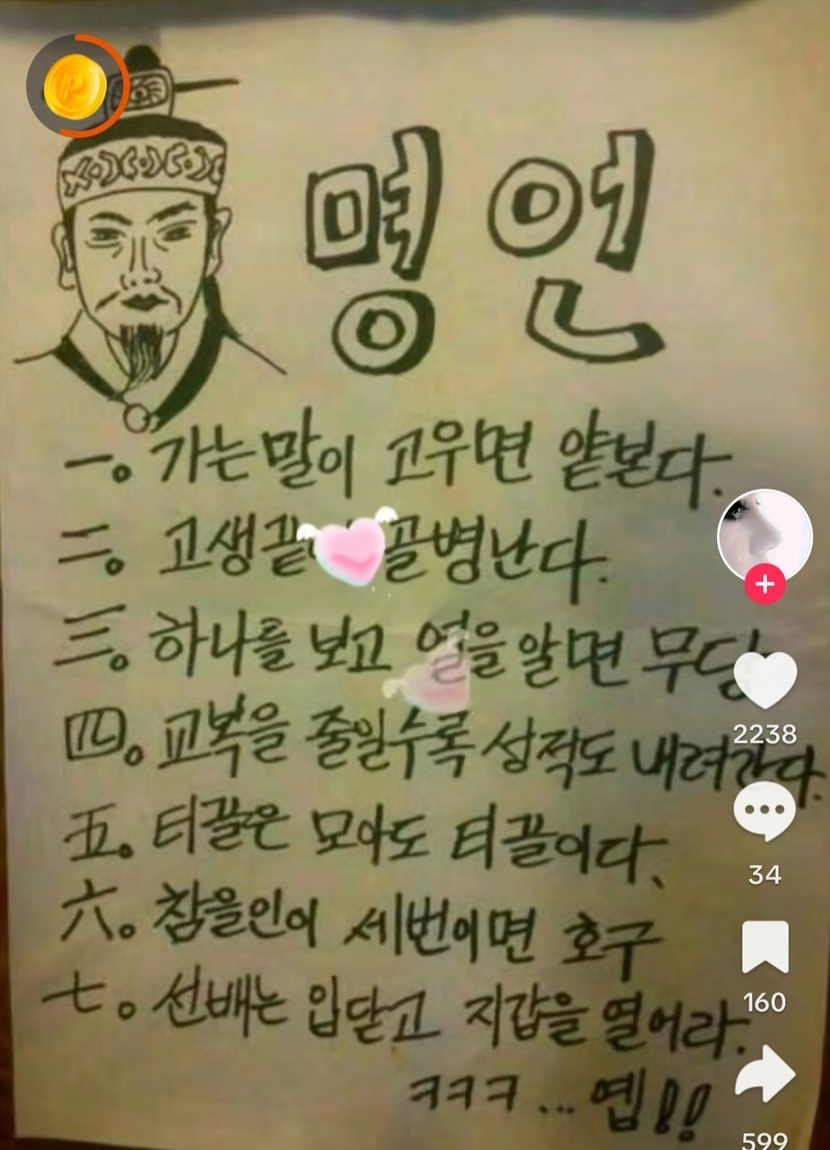 명언
一。 가는말이 고우면 얕본다.
二。 고생끝 골병난다.
三。 하나를 보고 열을 알면 무당
四。 교복을 줄일수록 성적도 내려간다.
五。 티끌은 모아도 티끌이다.
六。 참을인이 세번이면 호구
七。 선배는 입닫고 지갑을 열어라.
ㅋㅋㅋ ... 옙!!
2238
34
160
599